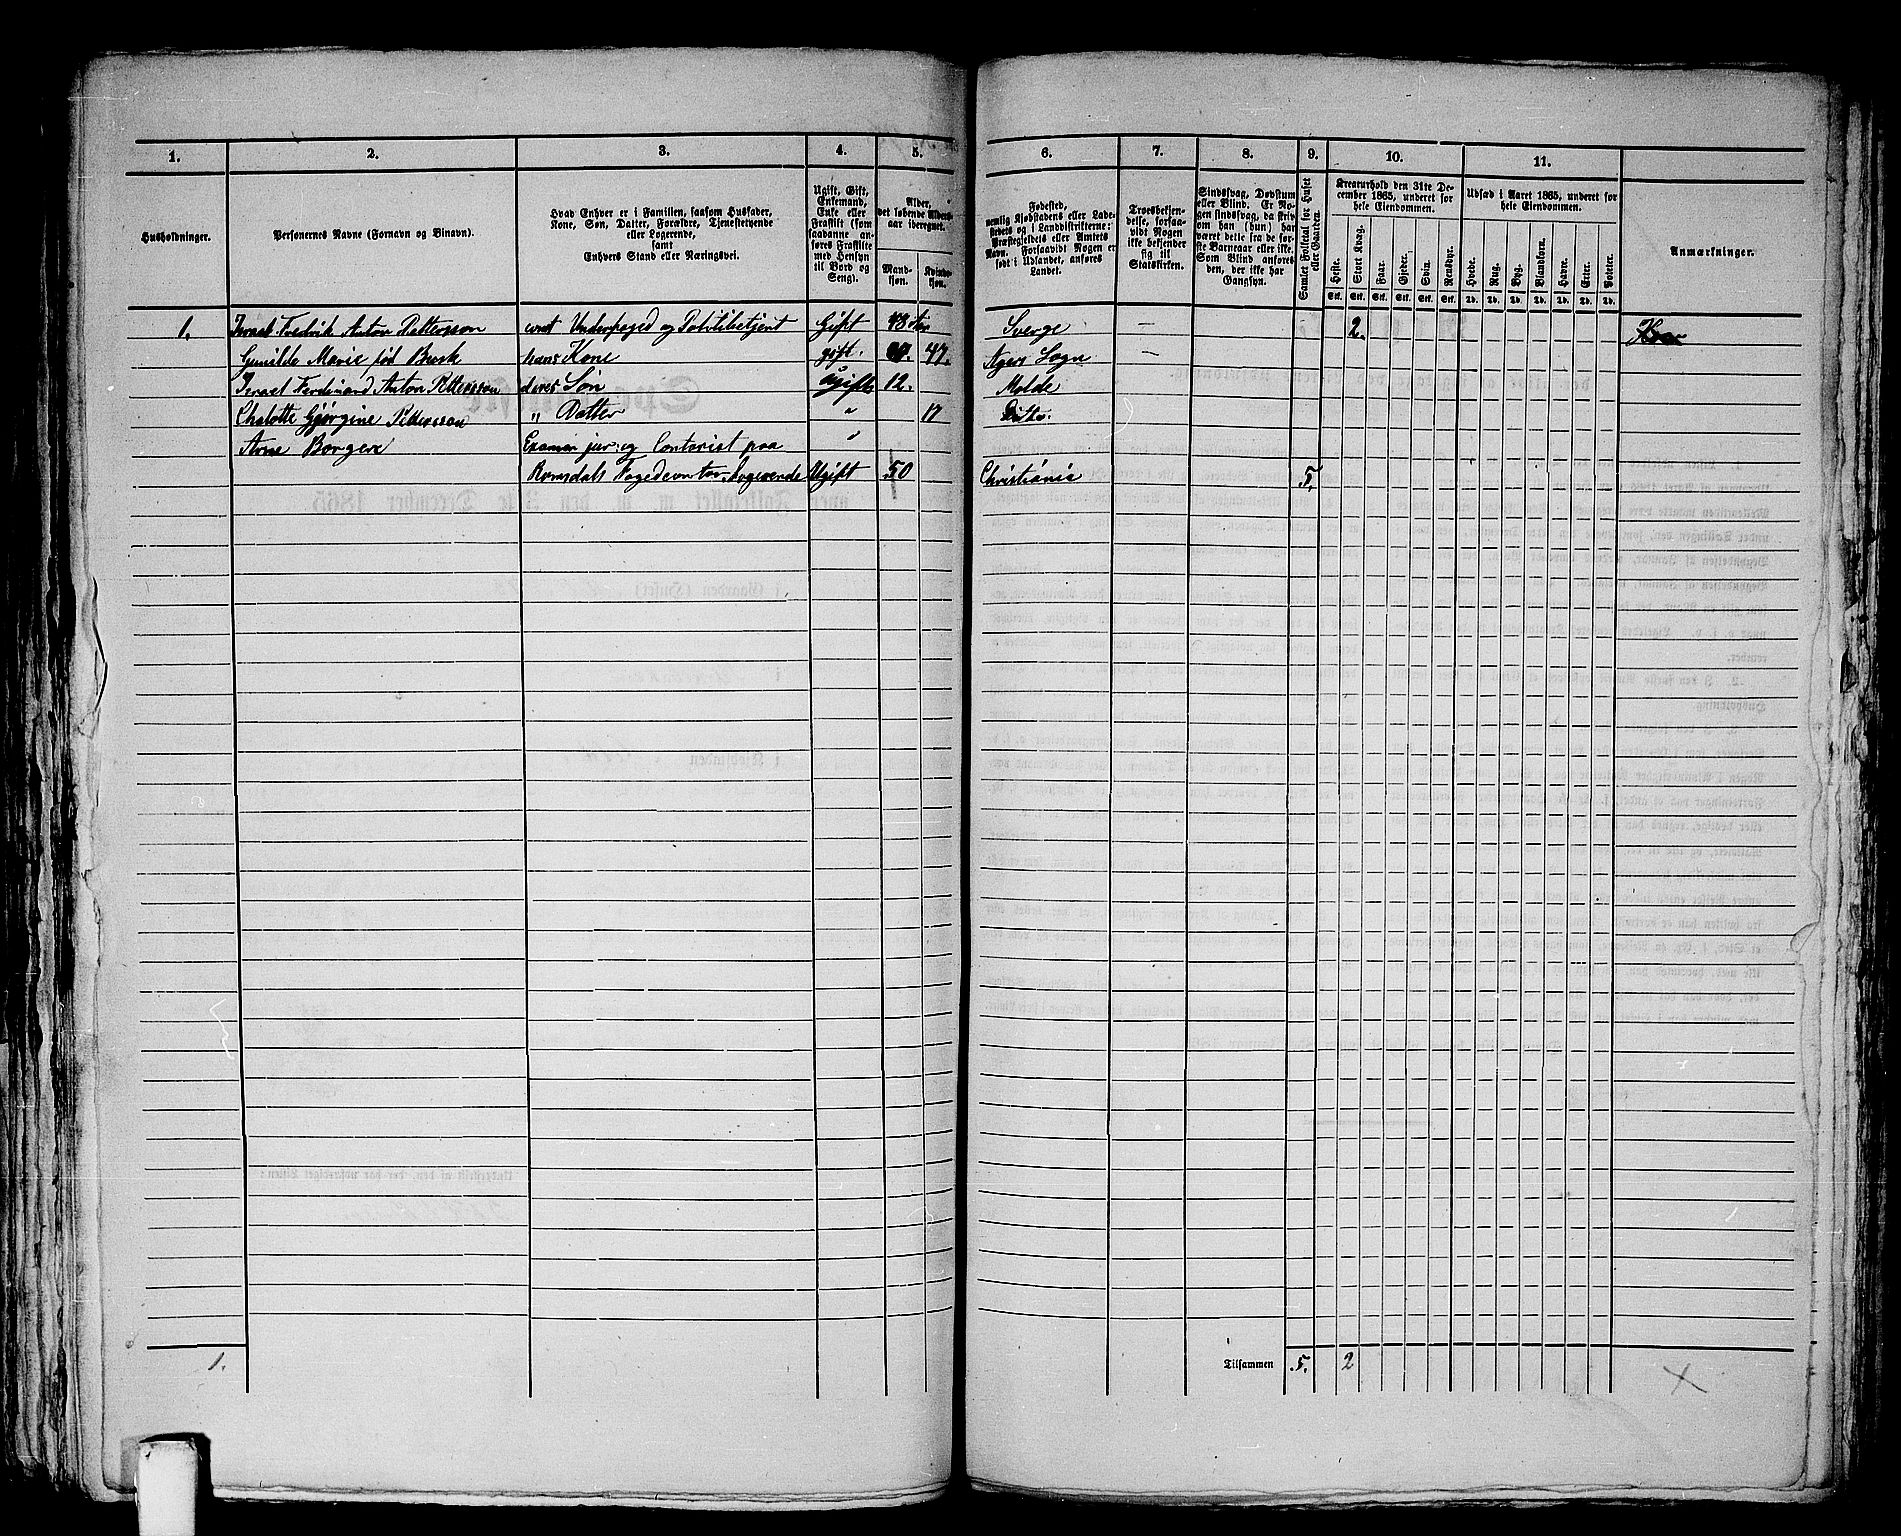 1. 2. 3. 4. 5. 6. 7. 8. 9. 10. 11.
Husholdninger.
Personernes Navne (Fornavn og Binavn).
Hvad Enhver er i Familien, saasom Husfader,
Kone, Søn, Datter, Forældre, Tjenestetyende
eller Logerende,
samt
Enhvers Stand eller Næringsvei.
Ugift, Gift,
Enkemand,
Enke eller
Fraskilt (som
saadanne an-
føres Fraskilte
med Hensyn
til Bord og
Seng).
Alder,
det løbende Alders-
aar iberegnet.
Mand-
kjøn.
Kvinde-
kjøn.
Fødested,
nemlig Kjøbstadens eller Lade-
stedets og i Landdistrikterne:
Præstegjeldets eller Amtets
Navn. Forsaavidt Nogen er
født i Udlandet, anføres
Landet.
Troesbekjen-
delse, forsaa-
vidt Nogen
ikke bekjender
sig til
Statskirken.
Sindssvag, Døvstum
eller Blind. Er No-
gen sindssvag, da skriv
om han (hun) har
været dette fra de før-
ste Barneaar eller ikke.
Som Blind anføres
den, der ikke har
Gangsyn.
Samlet Folketal for Huset
eller Gaarden.
Kreaturhold den 31te De-
cember 1865, underet for
hele Eiendommen.
Heste.
Stort Kvæg.
Faar.
Gjeder.
Svin.
Rensdyr.
Udsæd i Aaret 1865, underet for
hele Eiendommen.
Hvede.
Rug.
Byg.
Blandkorn.
Havre.
Erter.
Poteter.
Stk. Stk. Stk. Stk. Stk. Stk. Td. Td. Td. Td. Td. Td. Td.
Anmærkninger.
1. Israel Fredrik Anton Pettersson const Underfoged og Politibetjent Gift 48 Sverge — 2.
Gunilda Marie fød Busk hans Kone gift. 47. Agers Sogn —
Israel Ferdinand Anton Pettersson deres Søn Ugift 12. Molde
Chalotte Gjørgine Pettersson „ Datter „ 17 Ditto.
Arne Borgen Examen jur: og Contorist paa „
Romsdals Fogedcontor, Logerende Ugift 50 Christiania 5.
1. Tilsammen 5. 2